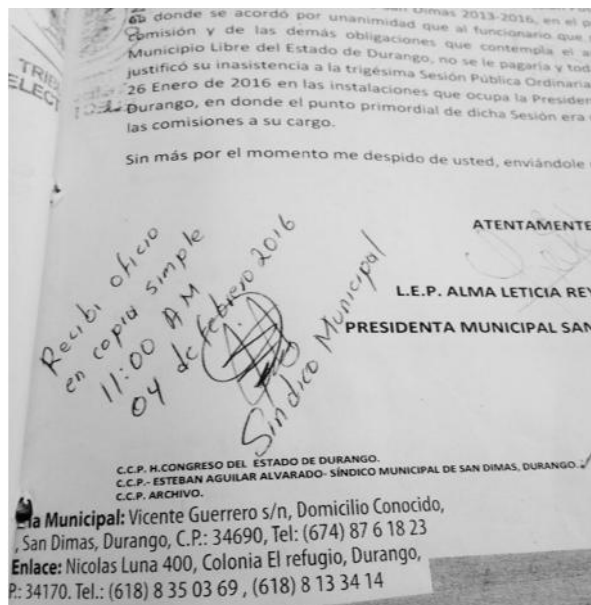 Dimas 2013-2016, en el p
en donde se acordó por unanimidad que al funcionario que
comisión y de las demás obligaciones que contempla el a
Municipio Libre del Estado de Durango, no se le pagaría y tod
justificó su inasistencia a la trigésima Sesión Pública Ordinaria
26 Enero de 2016 en las instalaciones que ocupa la Presiden
Durango, en donde el punto primordial de dicha Sesión era
las comisiones a su cargo.
Sin más por el momento me despido de usted, enviándole
TRIB
ELECT
ATENTAMENTE
L.E.P. ALMA LETICIA REY
PRESIDENTA MUNICIPAL SAN
Recibi oficio
en copia simple
11:00 AM
04 de febrero 2016
Sindico Municipal
C.C.P. H.CONGRESO DEL ESTADO DE DURANGO.
C.C.P.- ESTEBAN AGUILAR ALVARADO- SÍNDICO MUNICIPAL DE SAN DIMAS, DURANGO.
C.C.P. ARCHIVO.
ia Municipal: Vicente Guerrero s/n, Domicilio Conocido,
, San Dimas, Durango, C.P.: 34690, Tel: (674) 87 6 18 23
Enlace: Nicolas Luna 400, Colonia El refugio, Durango,
P.: 34170. Tel.: (618) 8 35 03 69 , (618) 8 13 34 14